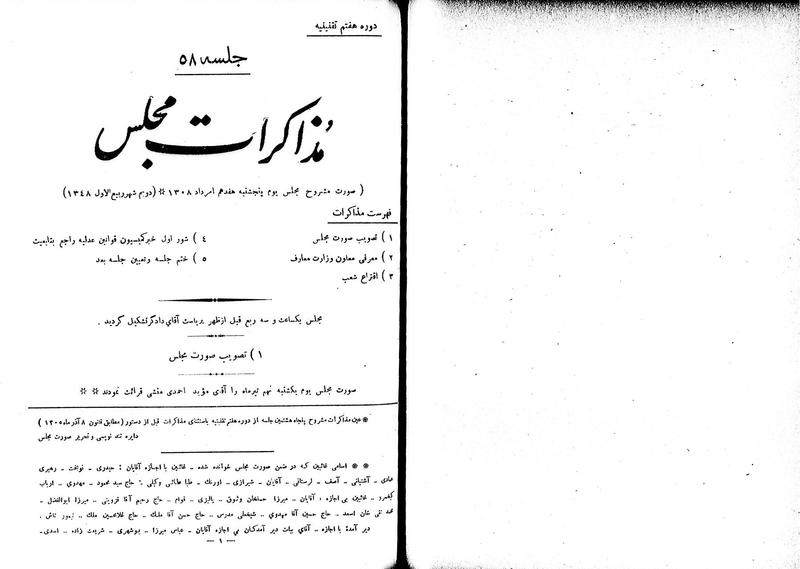 دوره هفتم تقنینیه
جلسه ۵۸
مذاکرات مجلس
( صورت مشروح مجلس یوم پنجشنبه هفدهم امرداد ۱۳۰۸ * (دویم شهر ربیع الاول ۱۳۴۸)
فهرست مذاکرات
۱ ) تصویب صورت مجلس
۲ ) معرفی معاون وزارت معارف
۳ ) اقتراع شعب
۴ ) شور اول خبر کمیسیون قوانین عدلیه راجع بتابعیت
۵ ) ختم جلسه وتعیین جلسه بعد
مجلس یکساعت و سه ربع قبل ازظهر بریاست آقای دادگر تشکیل گردید .
۱ ) تصویب صورت مجلس
صورت مجلس یوم یکشنبه نهم تیرماه را آقای مؤید احمدی منشی قرائت نمودند * *
* عین مذاکرات مشروح پنجاه هشتمین جلسه از دوره هفتم تقنینیه باستثنای مذاکرات قبل از دستور (مطابق قانون ۸ آذرماه ۱۳۰۵)
دایره تند نویسی و تحریر صورت مجلس
* * اسامی غائبین که در ضمن صورت مجلس خوانده شده ـ غائبین با اجازه آقایان : حیدری ـ نوبخت ـ رهبری
عبادی ـ آشتیانی ـ آصف ـ ارستانی ـ آقایان ـ شیرازی ـ اورنگ ـ طباطبائی وکیلی ـ حاج سید محمود ـ مهدوی ـ ارباب
کیخسرو ـ غائبین بی اجازه آقایان ـ میرزا حسنخان وثوق ـ پالیزی ـ قوام ـ حاج رحیم آقا قزوینی ـ میرزا ابوالفضل ـ
محمد تقی خان اسعد ـ حاج حسین آقا مهدوی ـ شیخعلی مدرس ـ حاج حسن آقا ملک ـ حاج غلامحسین ملک ـ تیمور تاش .
دیر آمدهٔ با اجازه ـ آقای بیات دیر آمدگان بی اجازه آقایان ـ عباس میرزا ـ بوشهری ـ شریعت زاده ـ اسدی.
ـ ۱ ـ